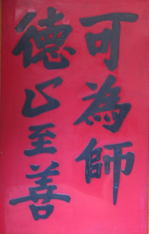 可為師
德止至善